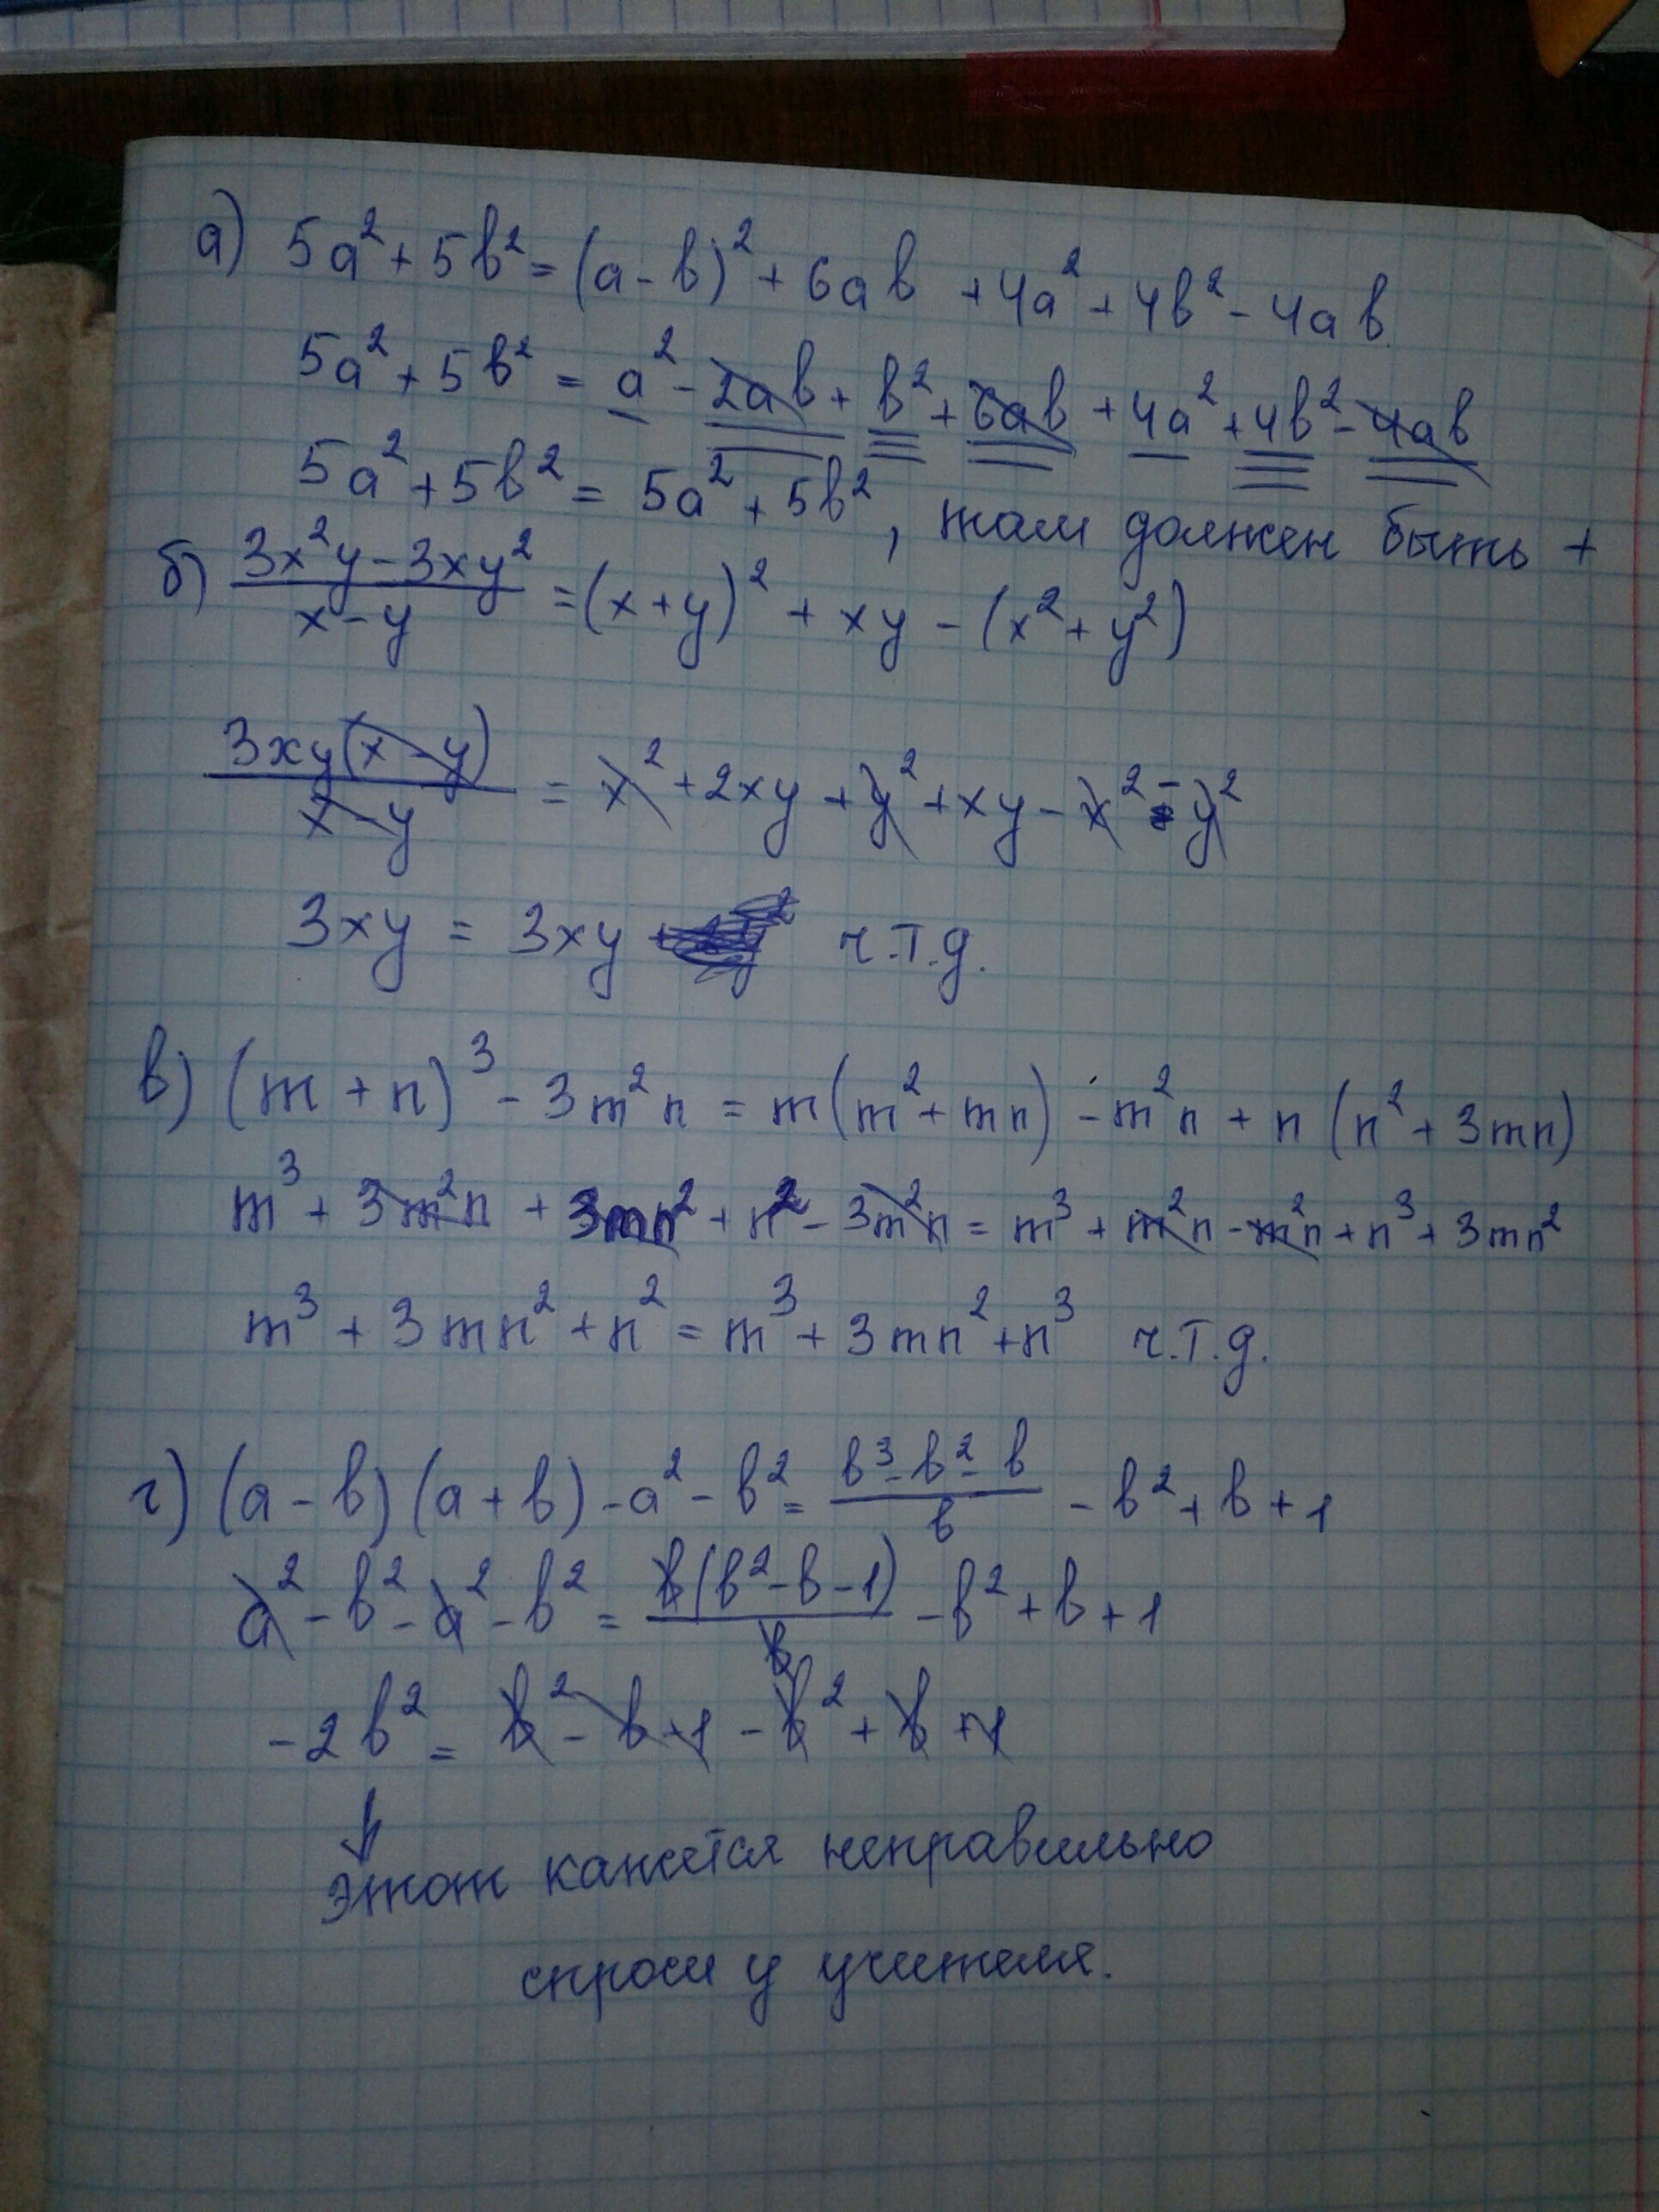 а) 5a² + 5b² = (a - b)² + 6ab + 4a² + 4b² - 4ab
5a² + 5b² = a² - 2ab + b² + 6ab + 4a² + 4b² - 4ab
5a² + 5b² = 5a² + 5b², там должен быть +
б) (3x²y - 3xy²)/(x - y) = (x + y)² + xy - (x² + y²)
3xy(x - y)/(x - y) = x² + 2xy + y² + xy - x² - y²
3xy = 3xy ч.т.д.
в) (m + n)³ - 3m²n = m(m² + mn) - m²n + n(n² + 3mn)
m³ + 3m²n + 3mn² + n² - 3m²n = m³ + m²n - m²n + n³ + 3mn²
m³ + 3mn² + n² = m³ + 3mn² + n³ ч.т.д.
г) (a - b)(a + b) - a² - b² = (b³ - b² - b)/b - b² + b + 1
a² - b² - a² - b² = b(b² - b - 1)/b - b² + b + 1
-2b² = b² - b - 1 - b² + b + 1
этот кажется неправильно
спроси у учителя.